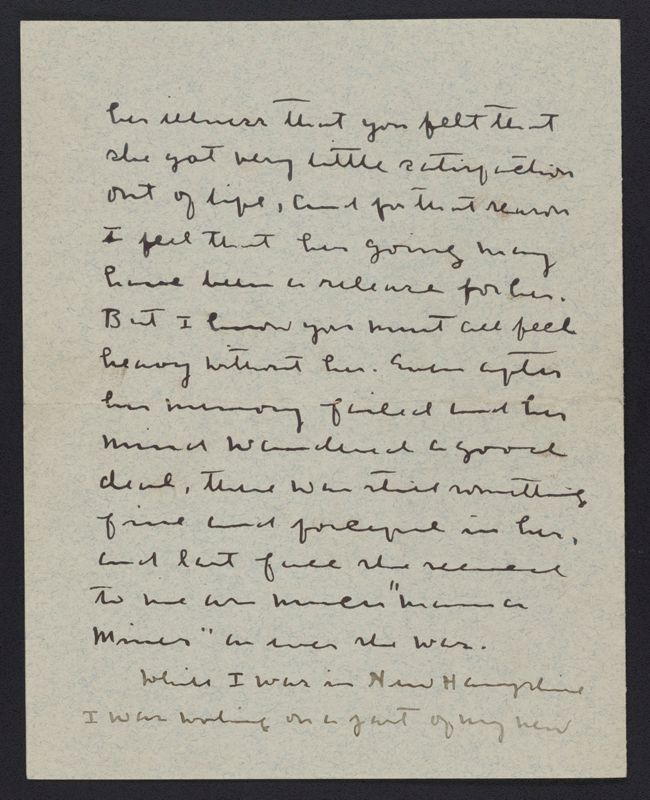 her illness that you felt that
she got very little satisfaction
out of life, and for that reason
I feel that her going may
have been a release for her.
But I know you must all feel
heavy without her. Even after
her memory failed and her
mind wandered a good
deal, there was still something
fine and forceful in her,
and last fall she seemed
to me as much "mama
Miner" as ever she was.
While I was in New Hampshire
I was working on a part of my new